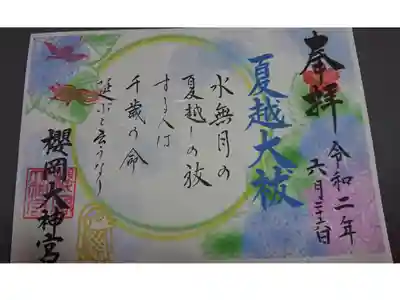 奉拝
令和二年
六月三十日
夏越大祓
水無月の
夏越しの祓
する人は
千歳の命
延ぶと云うなり
櫻岡大神宮